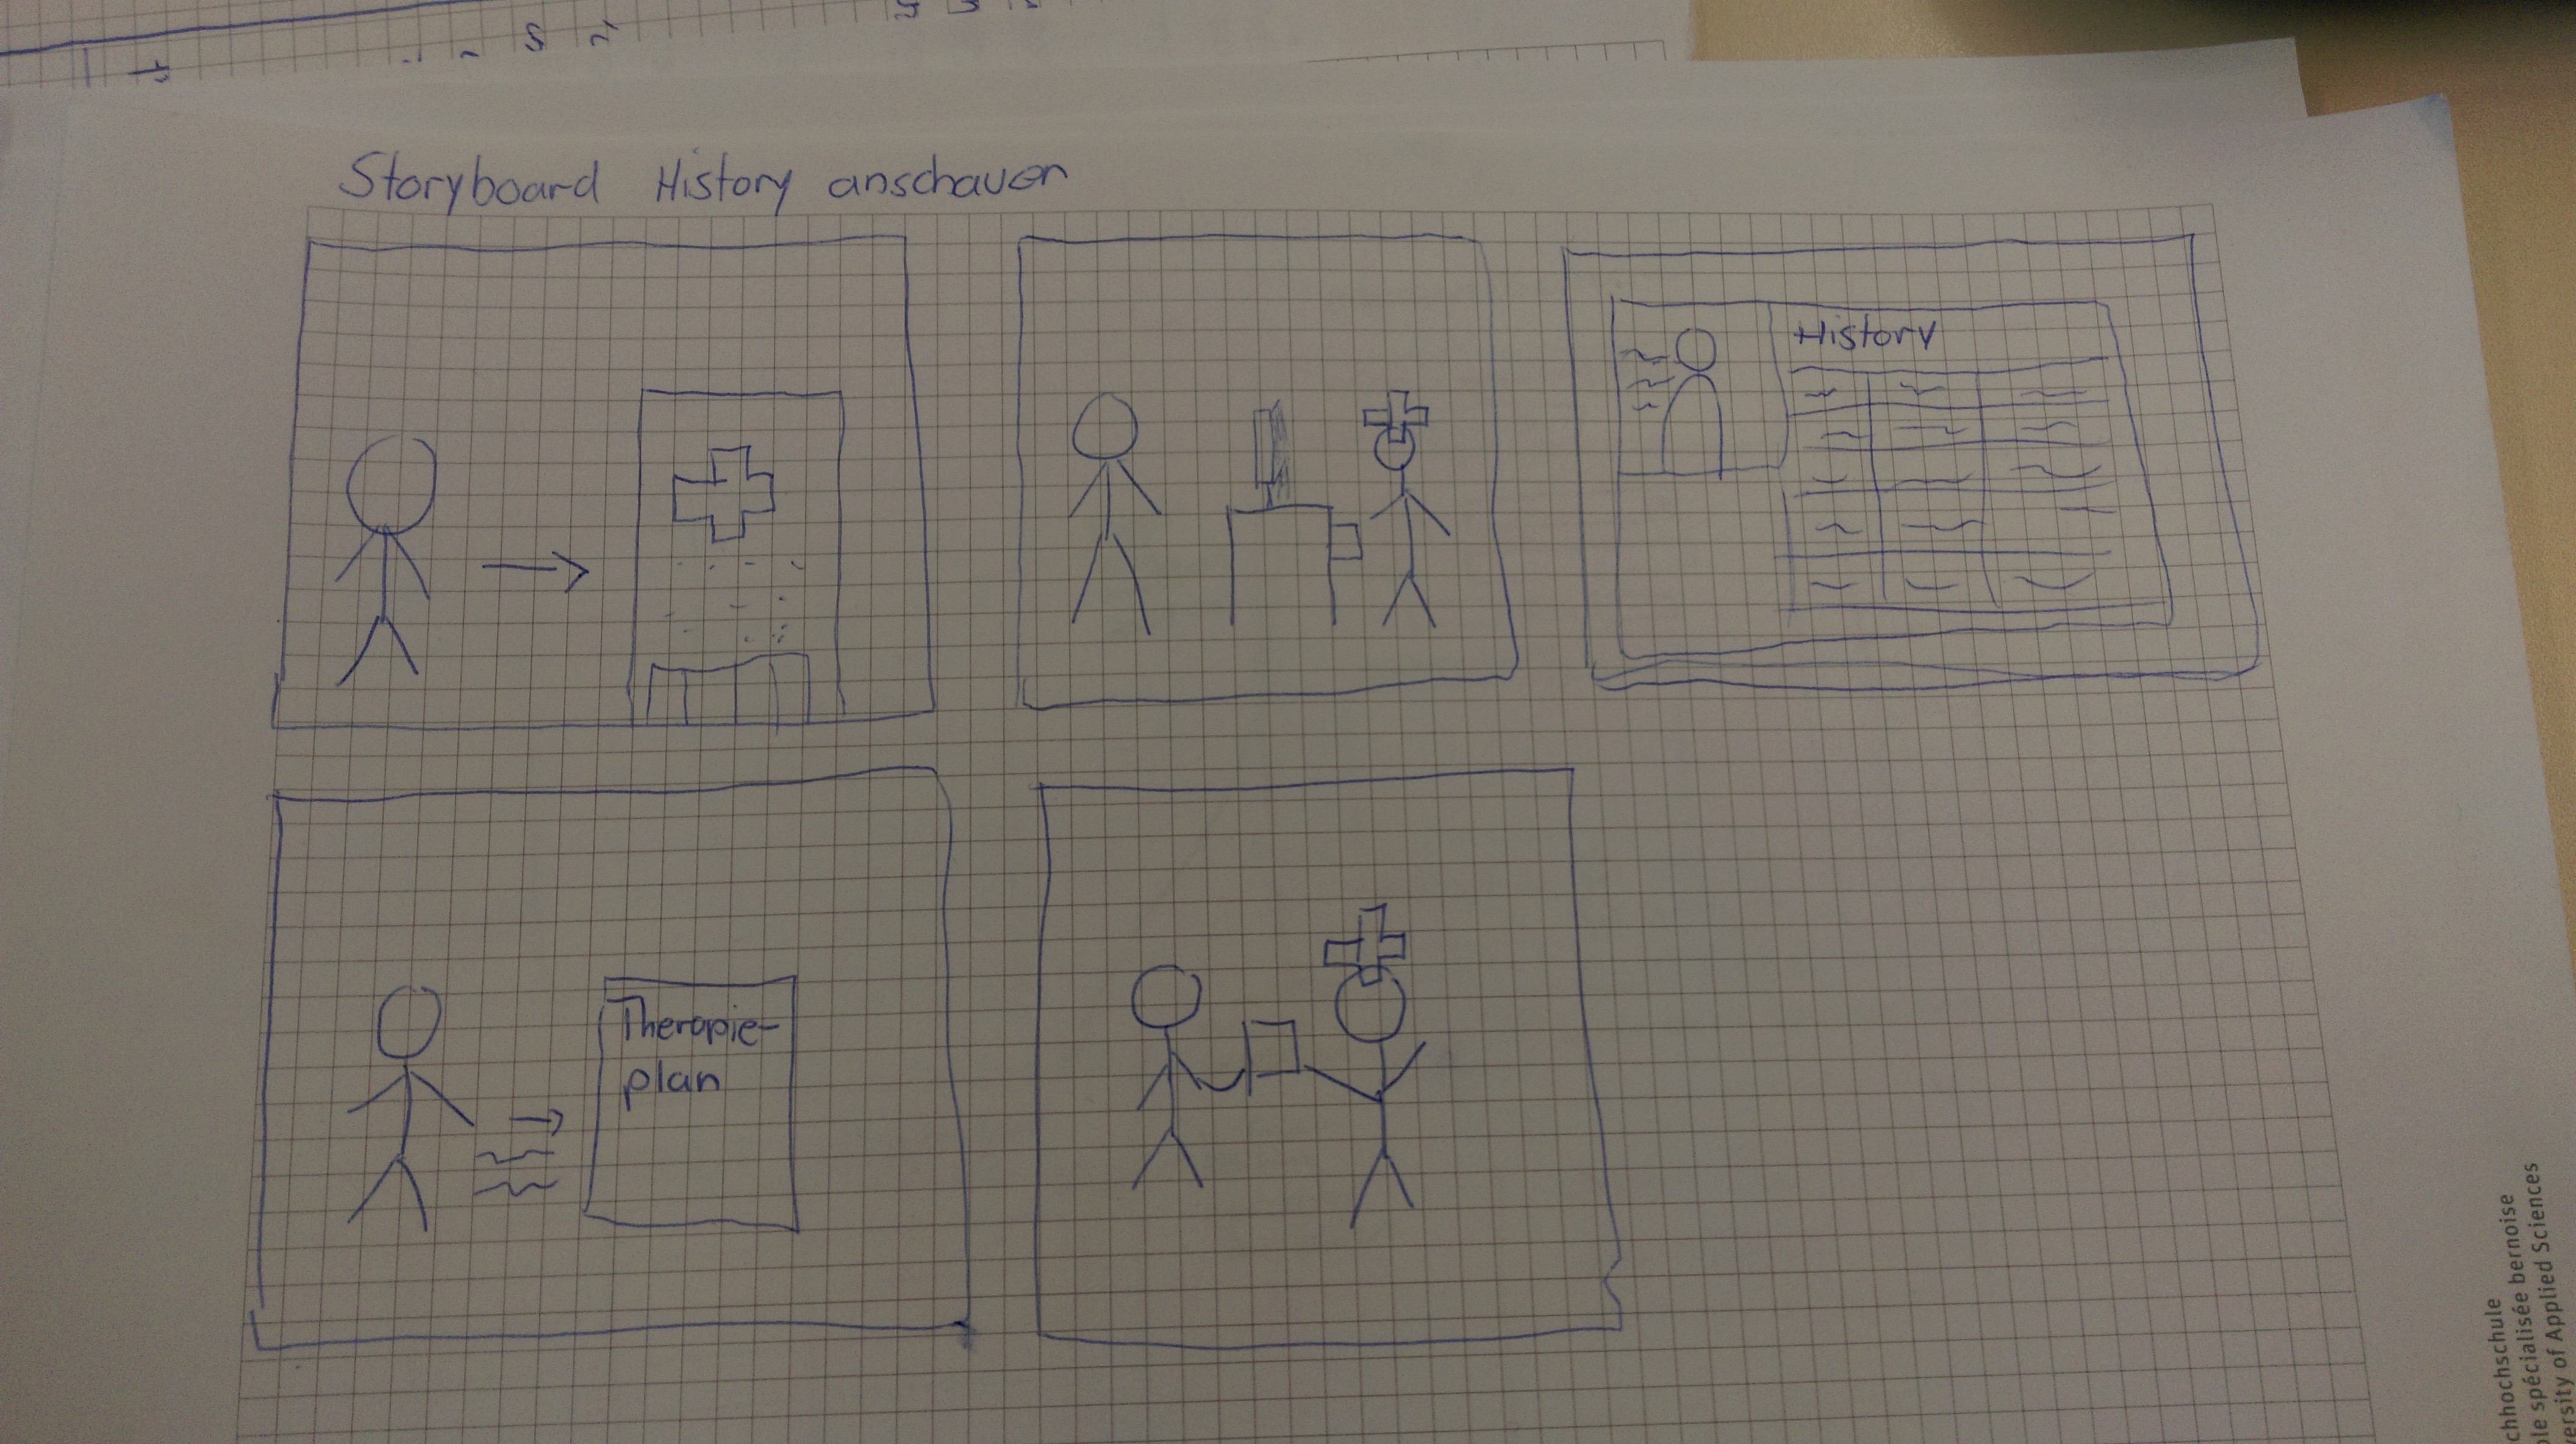 Storyboard History anschauen
History
Therapie-
plan
chhochschule
le spécialisée bernoise
ersity of Applied Sciences